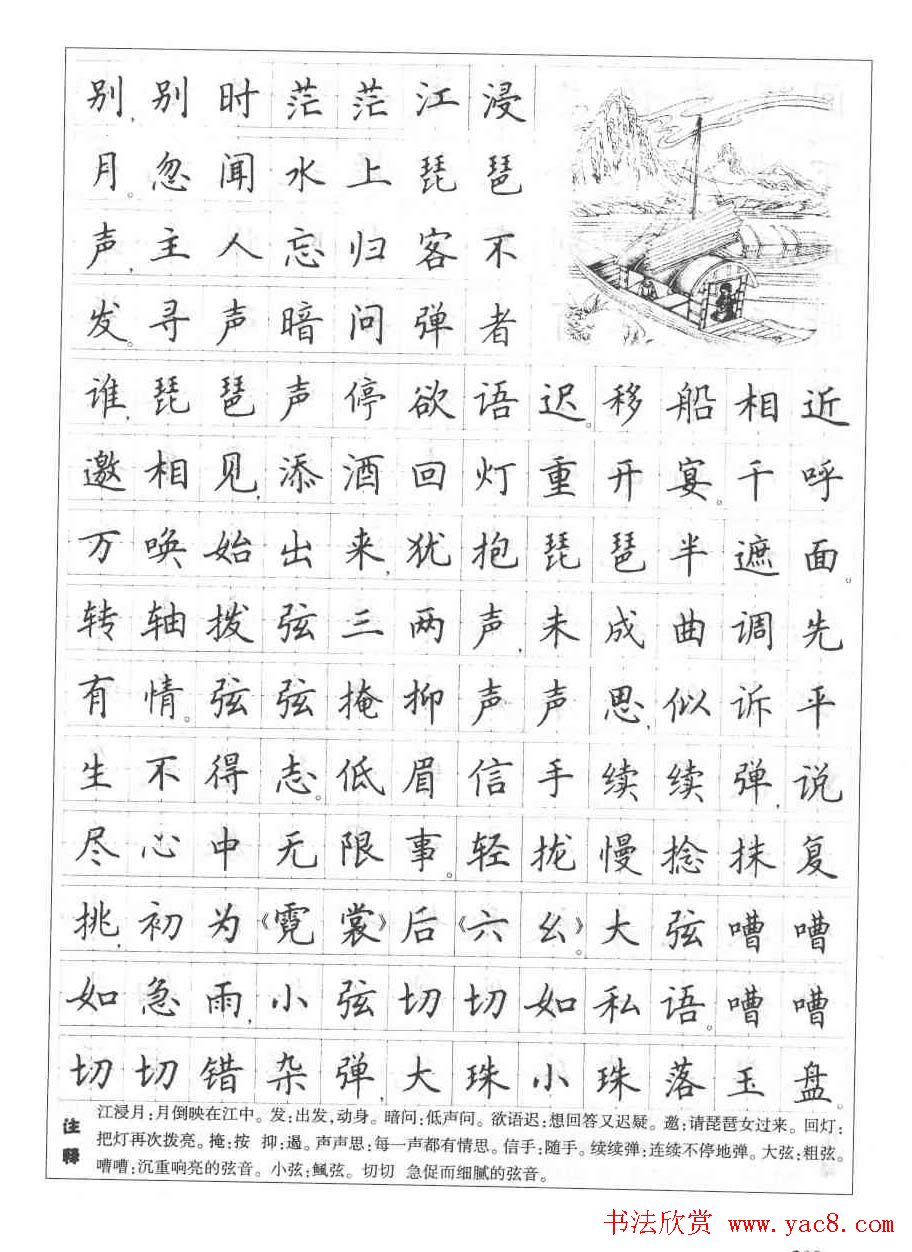 别,别时茫茫江浸
月。忽闻水上琵琶
声,主人忘归客不
发。寻声暗问弹者
谁,琵琶声停欲语迟。移船相近
邀相见,添酒回灯重开宴。千呼
万唤始出来,犹抱琵琶半遮面。
转轴拨弦三两声,未成曲调先
有情。弦弦掩抑声声思,似诉平
生不得志。低眉信手续续弹,说
尽心中无限事。轻拢慢捻抹复
挑,初为《霓裳》后《六幺》。大弦嘈嘈
如急雨,小弦切切如私语。嘈嘈
切切错杂弹,大珠小珠落玉盘。
注释
江浸月:月倒映在江中。发:出发,动身。暗问:低声问。欲语迟:想回答又迟疑。邀:请琵琶女过来。回灯:
把灯再次拨亮。掩:按 抑:遏。声声思:每一声都有情思。信手:随手。续续弹:连续不停地弹。大弦:粗弦。
嘈嘈:沉重响亮的弦音。小弦:细弦。切切 急促而细腻的弦音。
书法欣赏 www.yac8.com